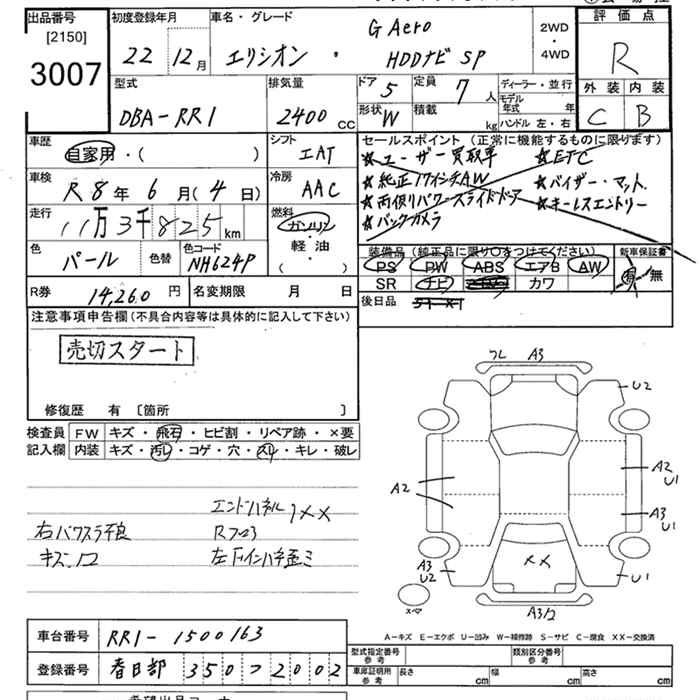 出品番号
[2150]
3007
初度登録年月
22 12月
車名・グレード
エリシオン・
G Aero
HDDナビ SP
2WD
・
4WD
評価点
R
外装 内装
C B
型式
DBA-RR1
排気量
2400 cc
ドア 5
形状 W
定員 7 人
積載 kg
ディーラー・並行
モデル年式 年
ハンドル 左・右
車歴
自家用・( )
シフト
IAT
車検
R 8年 6月(4日)
冷房
AAC
走行
11万3千825km
燃料
ガソリン
・
軽油
・
( )
色
パール
色替
色コード
NH624P
R券 14,260円
名変期限 月 日
セールスポイント(正常に機能するものに限ります)
★ユーザー買取車 ★ETC
★純正17インチAW ★バイザー・マット
★両側パワースライドドア ★キーレスエントリー
★バックカメラ
装備品(純正品に限り○をつけてください)
PS PW ABS エアB AW
SR ナビ カワ
新車保証書
有・無
後日品
注意事項申告欄(不具合内容等は具体的に記入して下さい)
売切スタート
修復歴 有 〔箇所 〕
検査員記入欄
FW キズ・飛石・ヒビ割・リペア跡・×要
内装 キズ・汚レ・コゲ・穴・スレ・キレ・破レ
エンドパネル XX
右バクスラ不良 Rフロ3
キズ、凹
フレ A3
U2
A2
A2
U1
A3
U1
XX
A3
U2
U1
スペマ
A3/2
A-キズ E-エクボ U-凹み W-補修跡 S-サビ C-腐食 XX-交換済
車台番号 RR1-1500163
登録番号 春日部 350 つ 2002
型式指定番号 参考
類別区分番号 参考
車庫証明用 参考 長さ cm 幅 cm 高さ cm